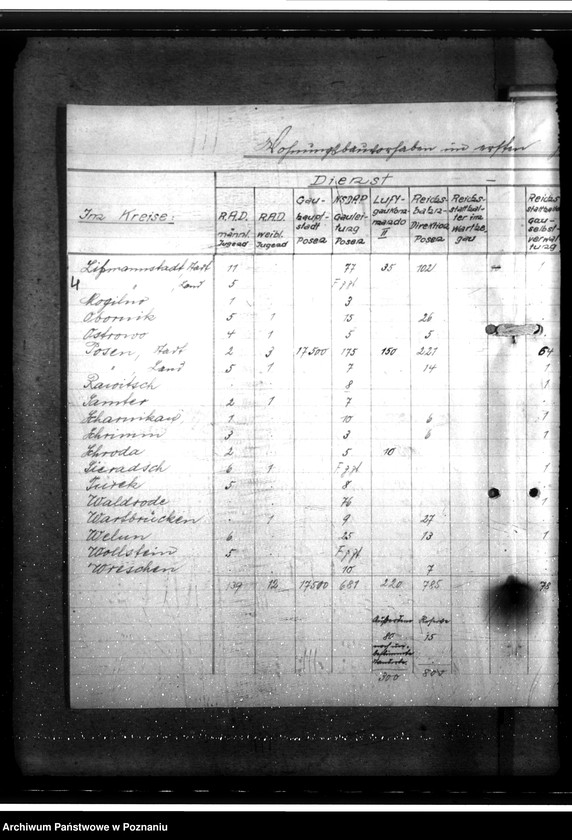 Wohnungsbauvorhaben im ersten
Dienst -
Im Kreise: R.A.D. männl. Jugend R.A.D. weibl. Jugend Gau-haupt-stadt Posen NSDAP Gaulei-tung Posen Luft-gaukom-mando II Reichs-bahn-Direktion Posen Reichs-statthal-ter im Warthe-gau Reichs Gau-selbst-verwal-tung
Litzmannstadt Stadt 11 77 35 102 1
4 " Land 5
Mogilno 1 3
Obornik 5 1 15 26
Ostrowo 4 1 5 5
Posen, Stadt 2 3 17500 175 150 221 64
" Land 5 1 7 14 1
Rawitsch 8 1
Samter 2 1 7
Scharnikau 1 10 6 1
Schrimm 3 3 6 1
Schroda 2 5 10
Sieradsch 6 1 1
Turek 5 8
Waldrode 76 1
Warthbrücken 1 9 27
Welun 6 25 13 1
Wollstein 5
Wreschen 10 7
139 12 17500 681 220 785 78
Außerdem Reserve
80 15
noch un-bestimmte
300 800
Archiwum Państwowe w Poznaniu